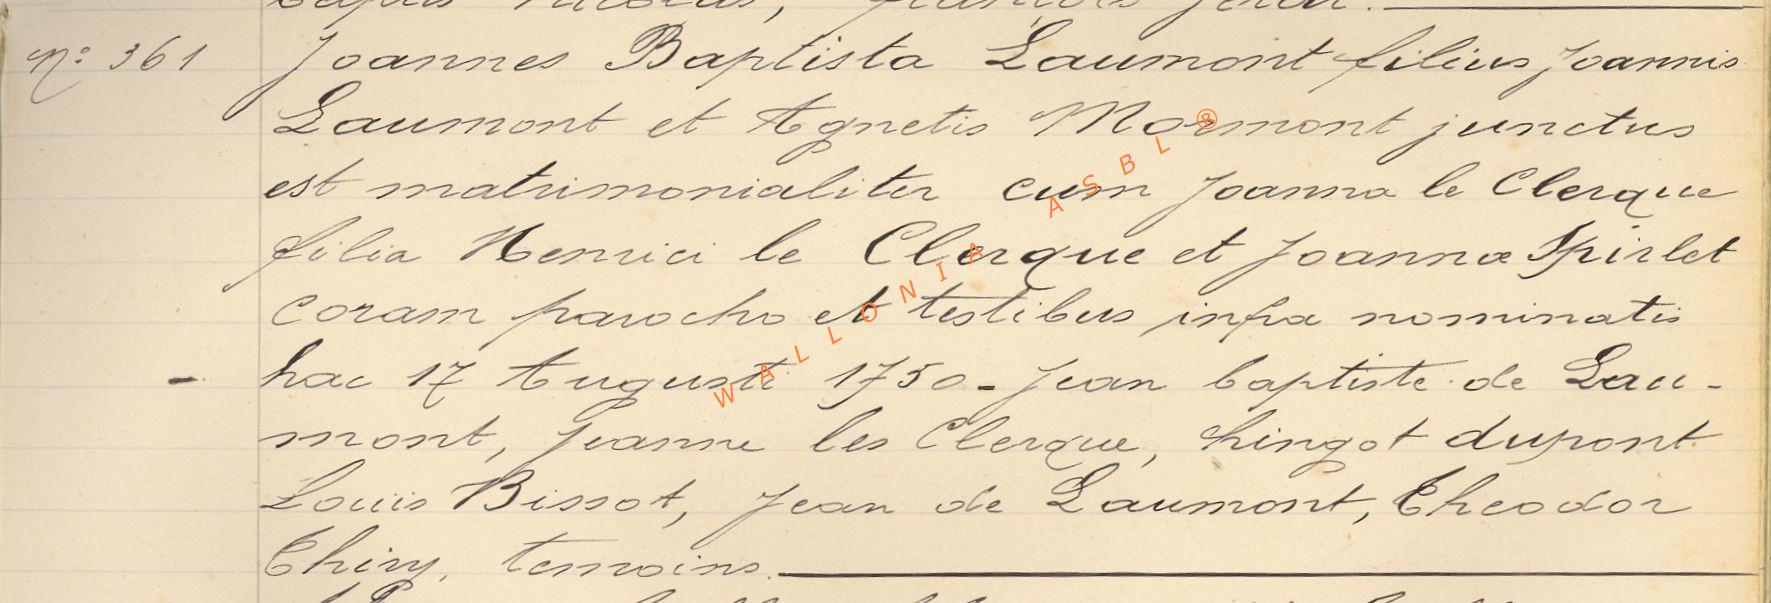 N° 361 Joannes Baptista Laumont filius Joannis
Laumont et Agnetis Mormont junctus
est matrimonialiter cum Joanna le Clerque
filia Henrici le Clerque et Joannæ Spirlet
coram parocho et testibus infra nominatis
hac 17 Augusti 1750 - Jean baptiste de Lau-
mont, Jeanne les Clerque, hingot dupont
Louis Bissot, Jean de Laumont, Theodor
Thiry, temoins.
WALLONIA ASBL ®